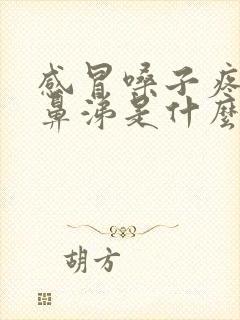 感冒嗓子疼
鼻涕是什麼
胡方